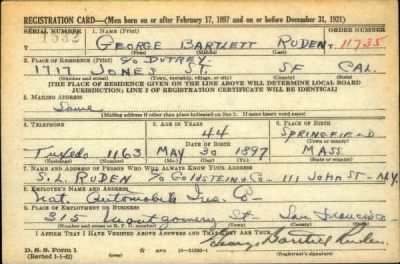 REGISTRATION CARD—(Men born on or after February 17, 1897 and on or before December 31, 1921)
SERIAL NUMBER 1. NAME (Print) ORDER NUMBER
1532 GEORGE BARTLETT RUDEN 11735
(First) (Middle) (Last)
2. PLACE OF RESIDENCE (Print) % DUTREY
1717 JONES ST. SF CAL.
(Number and street) (Town, township, village, or city) (County) (State)
[THE PLACE OF RESIDENCE GIVEN ON THE LINE ABOVE WILL DETERMINE LOCAL BOARD
JURISDICTION; LINE 2 OF REGISTRATION CERTIFICATE WILL BE IDENTICAL]
3. MAILING ADDRESS
Same
[Mailing address if other than place indicated on line 2. If same insert word same]
4. TELEPHONE 5. AGE IN YEARS 6. PLACE OF BIRTH
44 SPRINGFIELD
DATE OF BIRTH
Tuxedo 1163 MAY 30 1897 MASS.
(Exchange) (Number) (Mo.) (Day) (Yr.) (State or country)
7. NAME AND ADDRESS OF PERSON WHO WILL ALWAYS KNOW YOUR ADDRESS
S.L. RUDEN % GOLDSTEIN & Co— 111 JOHN ST— N.Y.
8. EMPLOYER'S NAME AND ADDRESS
Nat. Automobile Ins. Co—
9. PLACE OF EMPLOYMENT OR BUSINESS
315 Montgomery St— San Francisco
(Number and street or R. F. D. number) (Town) (County) (State)
I AFFIRM THAT I HAVE VERIFIED ABOVE ANSWERS AND THAT THEY ARE TRUE.
D. S. S. Form 1 George Bartlett Ruden
(Revised 1-1-42) (Registrant's signature)